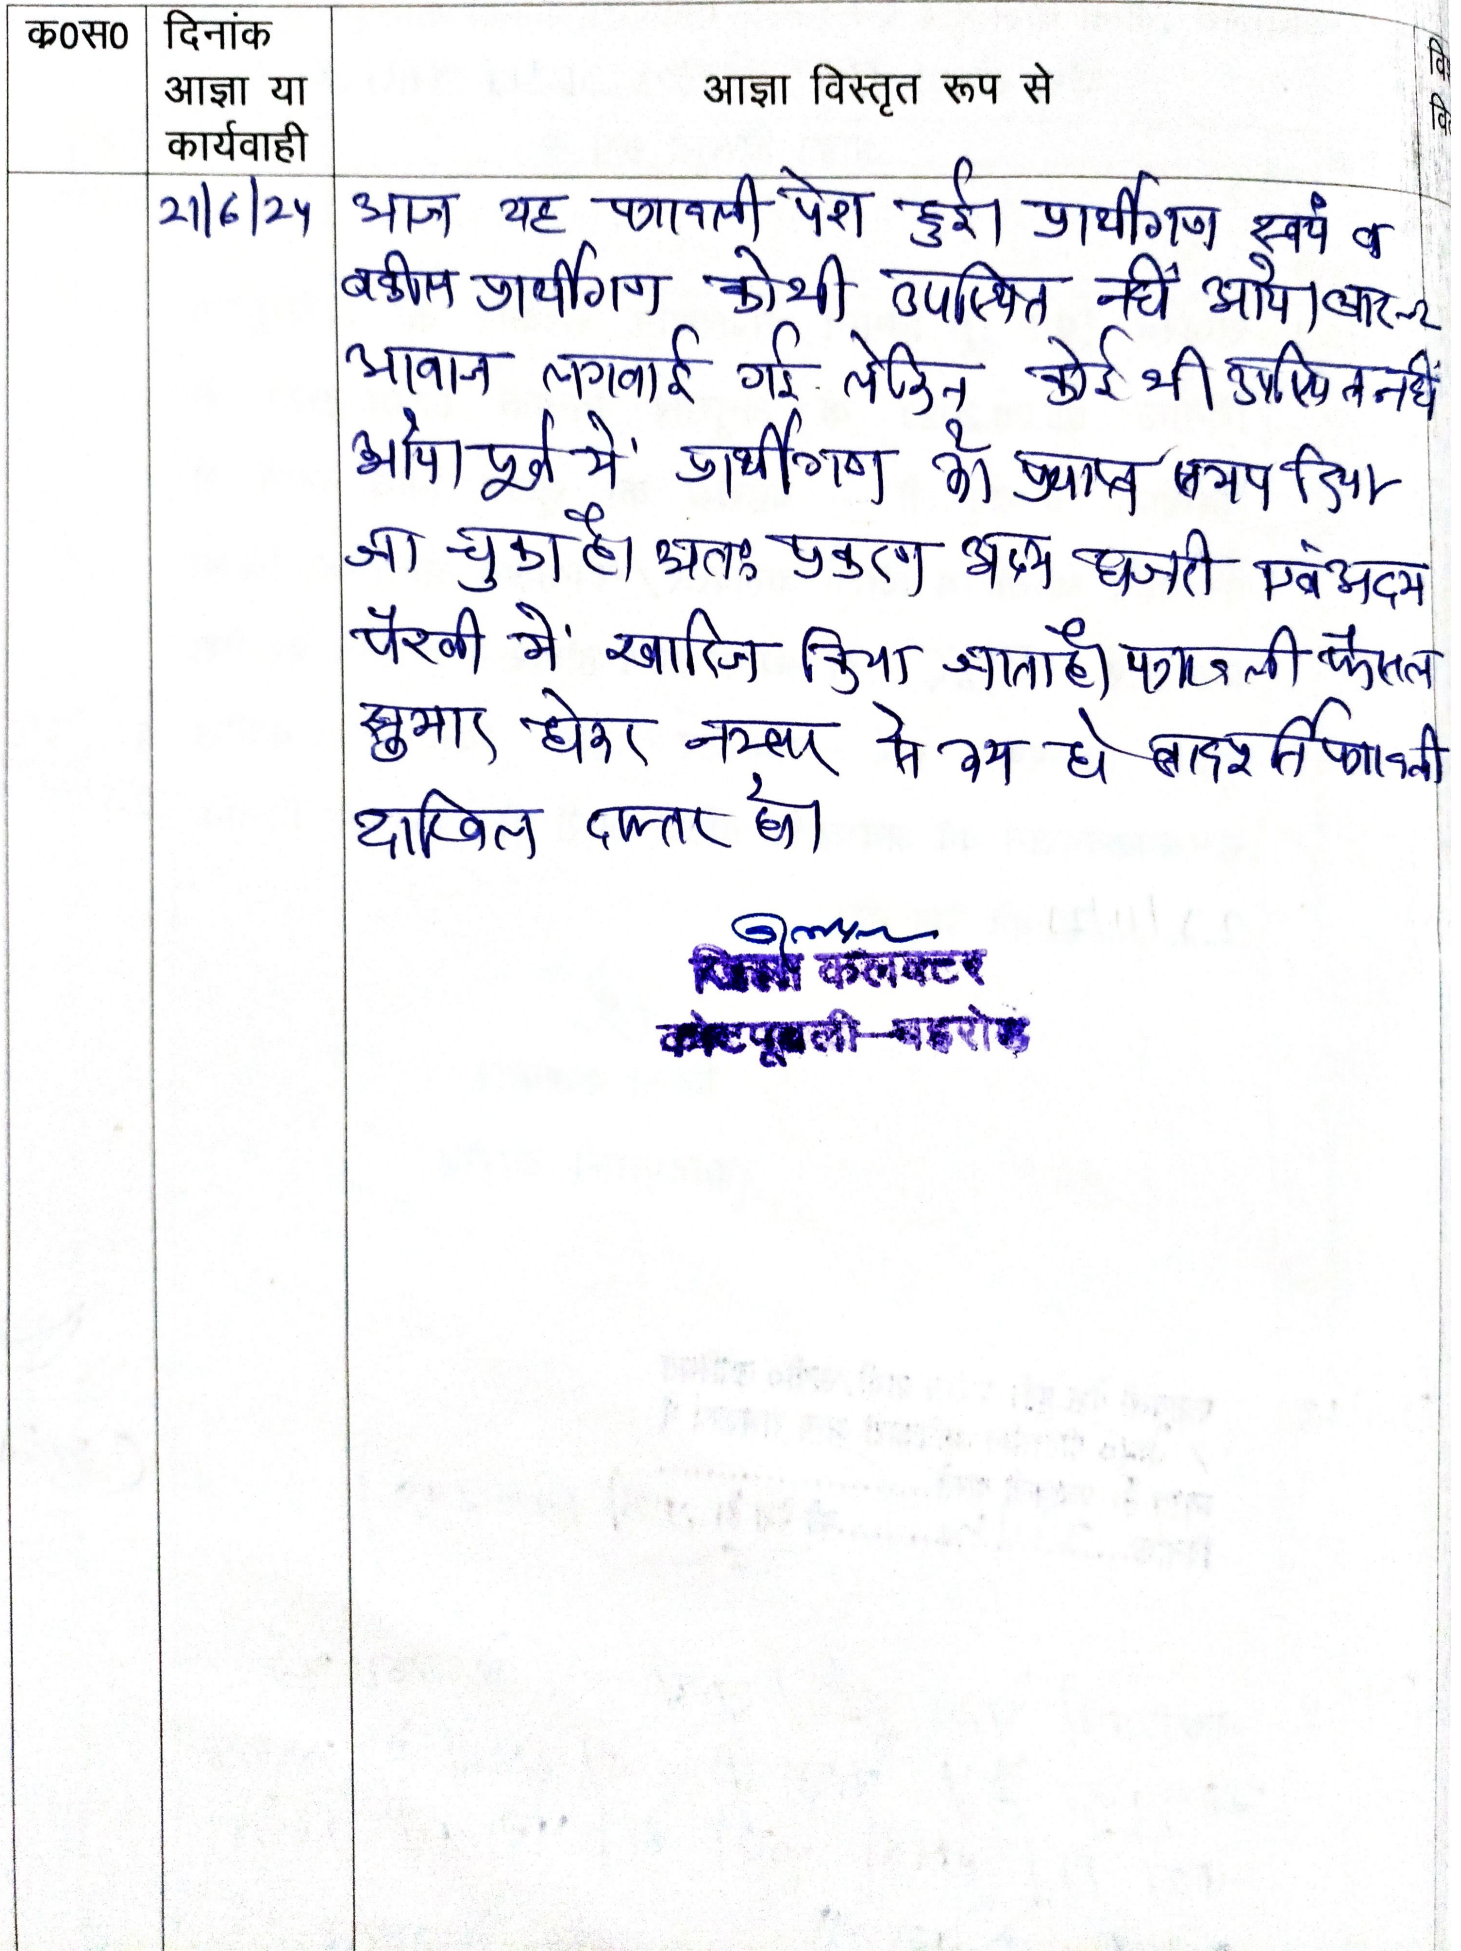 क0स0
दिनांक
आज्ञा या
कार्यवाही
आज्ञा विस्तृत रूप से
21/6/24
आज यह पत्रावली पेश हुई। प्रार्थीगण स्वयं व
वकील प्रार्थीगण कोभी उपस्थित नहीं आये। बार-2
आवाज लगवाई गई लेकिन कोई भी उपस्थित नहीं
आये। पूर्व में प्रार्थीगण को प्रयाप्त समय दिया
जा चुका है। अतः प्रकरण अदम हाजरी एवं अदम
पैरवी में खारिज किया जाता है। पत्रावली फैसल
शुमार होकर नम्बर से कम हो बाद पत्रावली
दाखिल दफ्तर हो।
जिला कलक्टर
कोटपूतली-बहरोड़